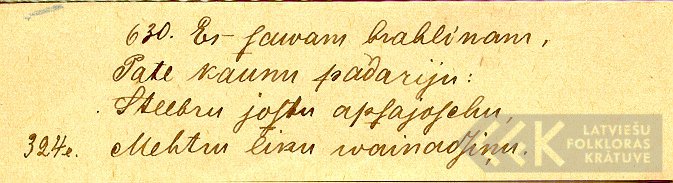 630. Es sawam brahlinam,
Pate kaunu padariju:
Steebru jostu apsajoschu,
324e. Mehtru liku wainadsiņu.
LATVIEŠU
FOLKLORAS
KRĀTUVE